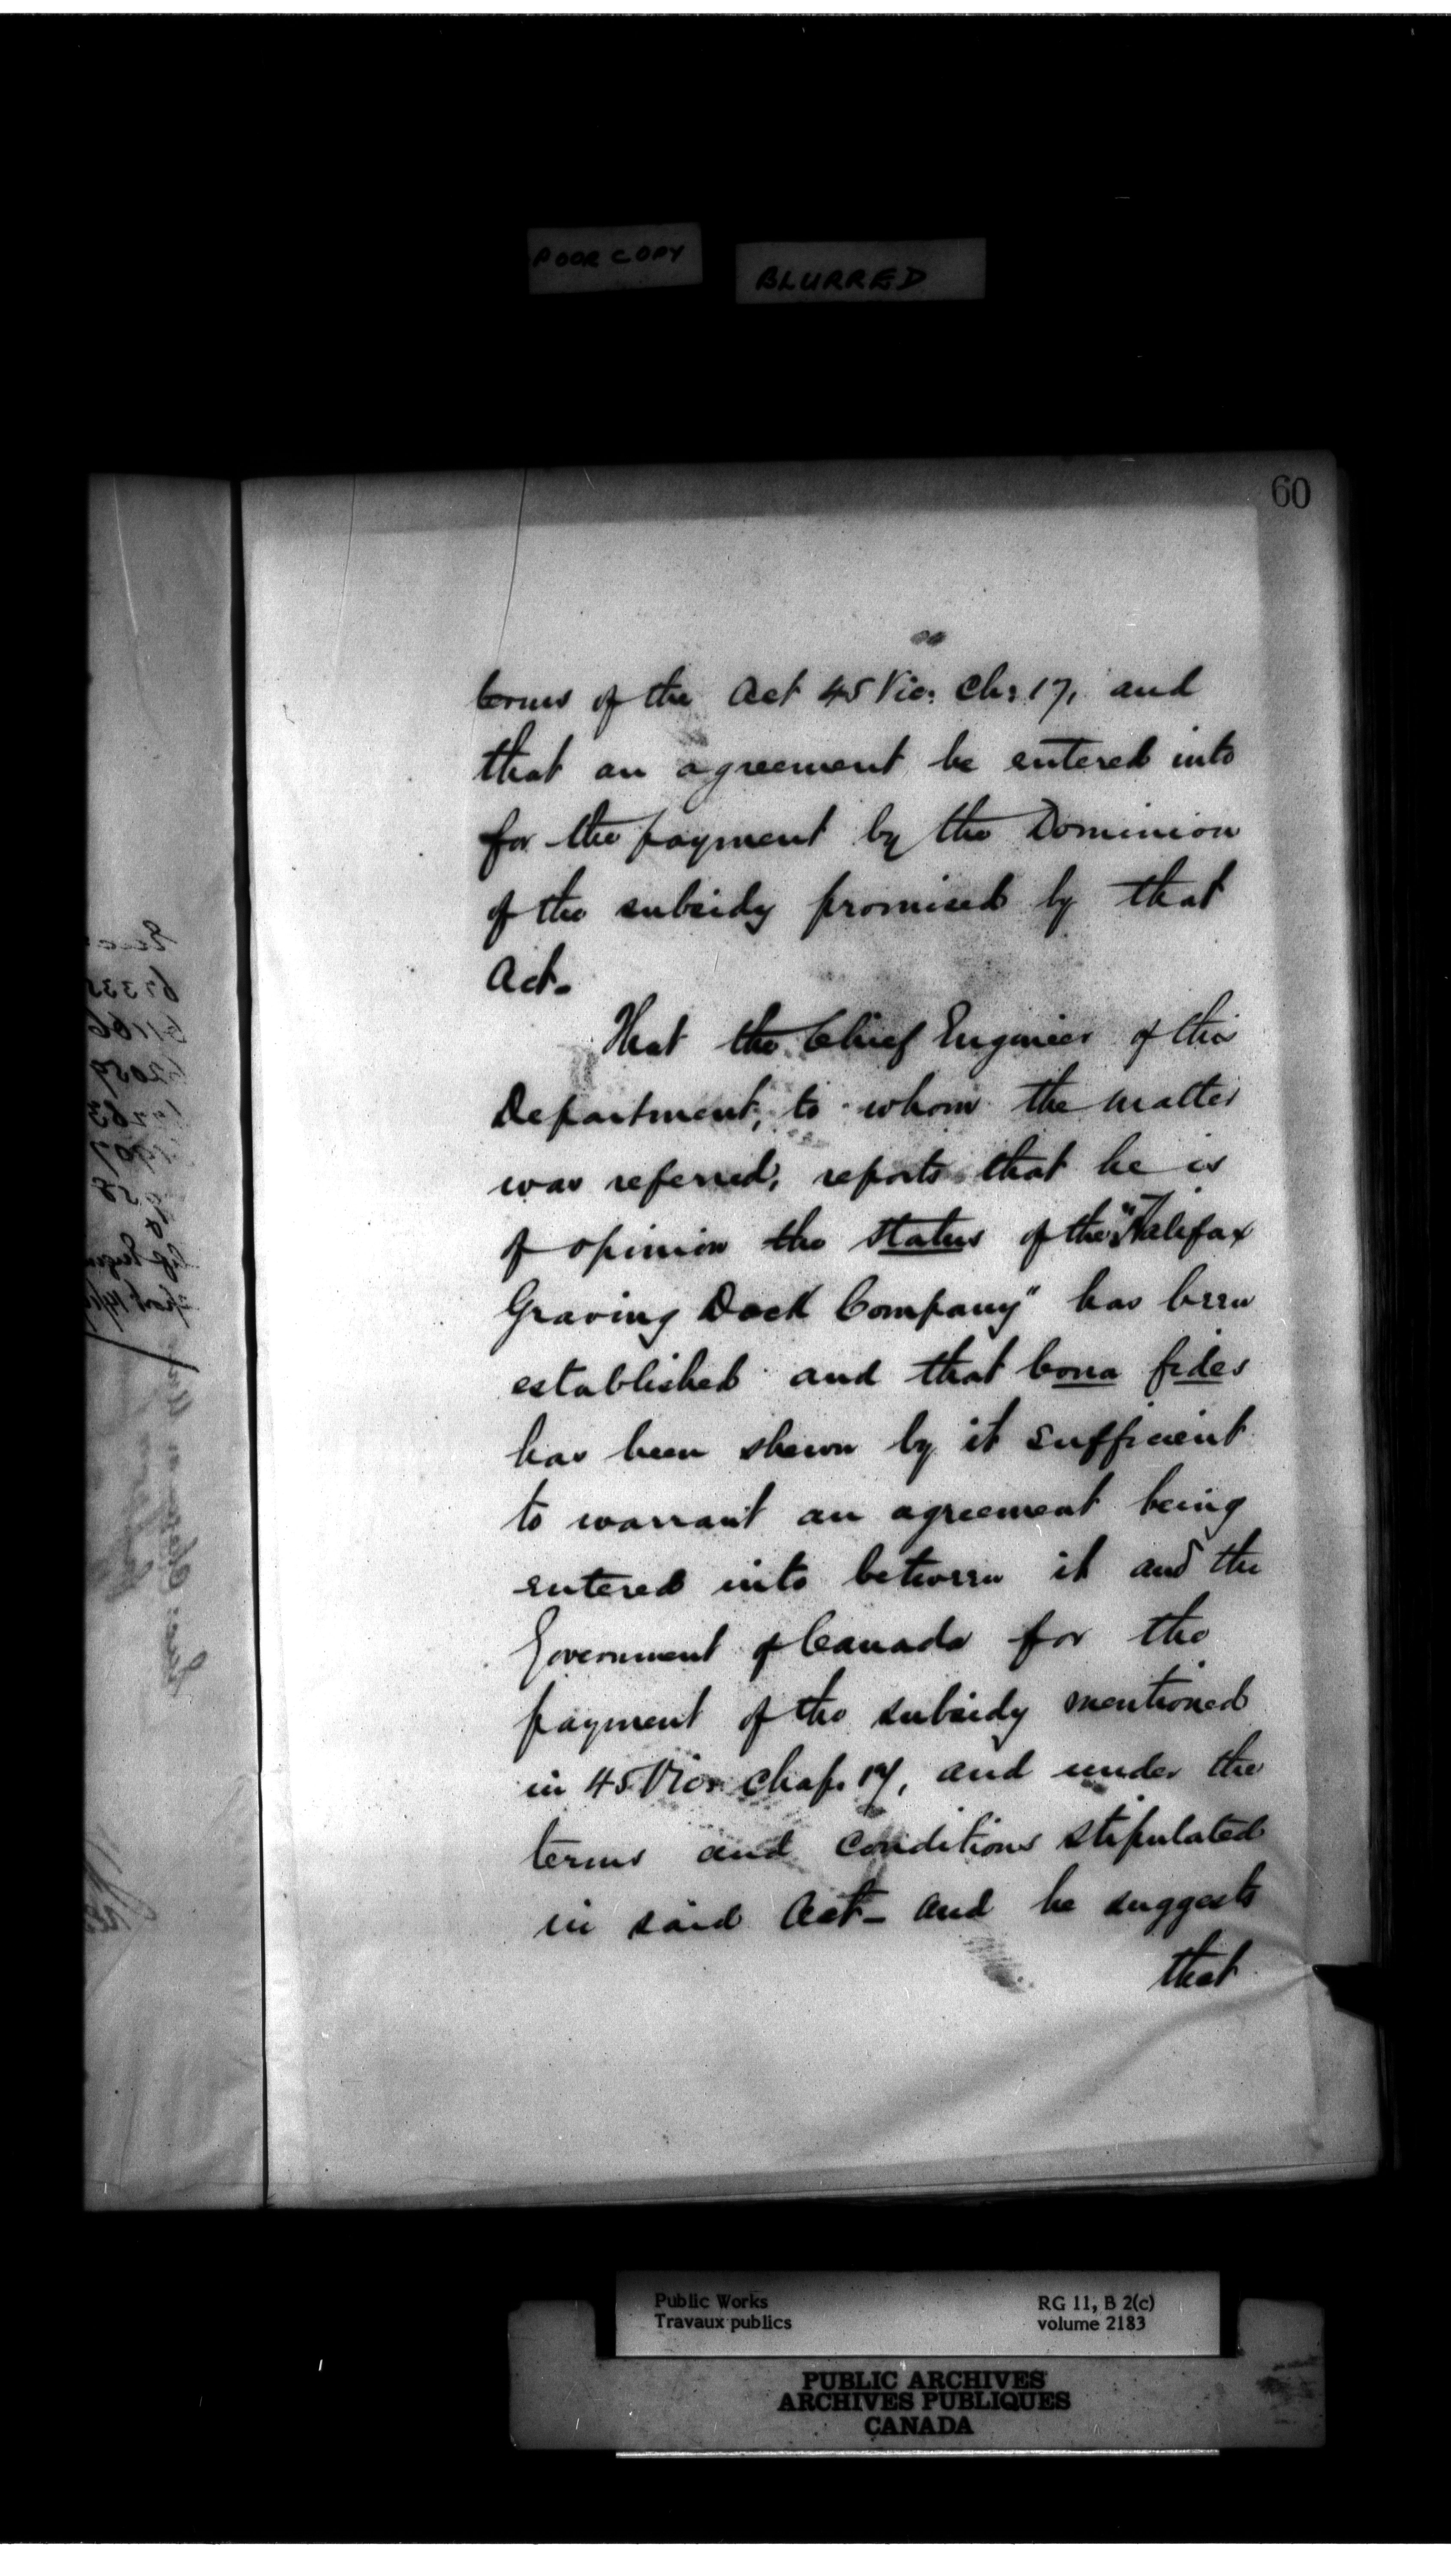 POOR COPY
BLURRED
60
terms of the Act 45 Vic: Ch: 17, and
that an agreement be entered into
for the payment by the Dominion
of the subsidy promised by that
Act.
That the Chief Engineer of this
Department, to whom the matter
was referred, reports that he is
of opinion the status of the "Halifax
Graving Dock Company" has been
established and that bona fides
has been shewn by it sufficient
to warrant an agreement being
entered into between it and the
Government of Canada for the
payment of the subsidy mentioned
in 45 Vic: chap. 17, and under the
terms and conditions stipulated
in said Act - And he suggests
that
Public Works
Travaux publics
RG 11, B 2(c)
volume 2183
PUBLIC ARCHIVES
ARCHIVES PUBLIQUES
CANADA